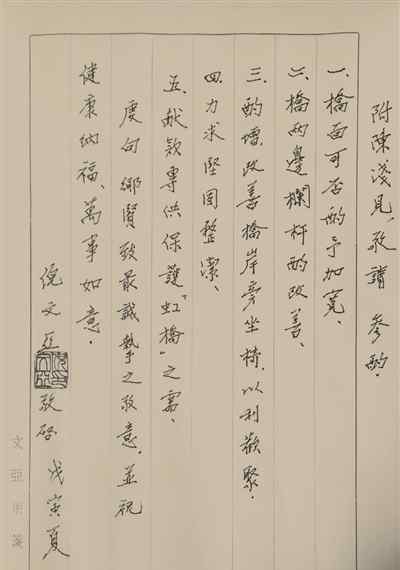 附陳淺見、敬請 參酌．
一、橋面可否酌予加寬、
二、橋兩邊欄杆酌改善、
三、酌增、改善橋岸旁坐椅、以利歡聚．
四、力求堅固整潔、
五、獻款專供保護“虹橋”之需、
虔向鄉賢致最誠摯之敬意、並祝
健康納福、萬事如意．
倪文亞 敬啓 戊寅夏
倪文亞印
文亞用箋